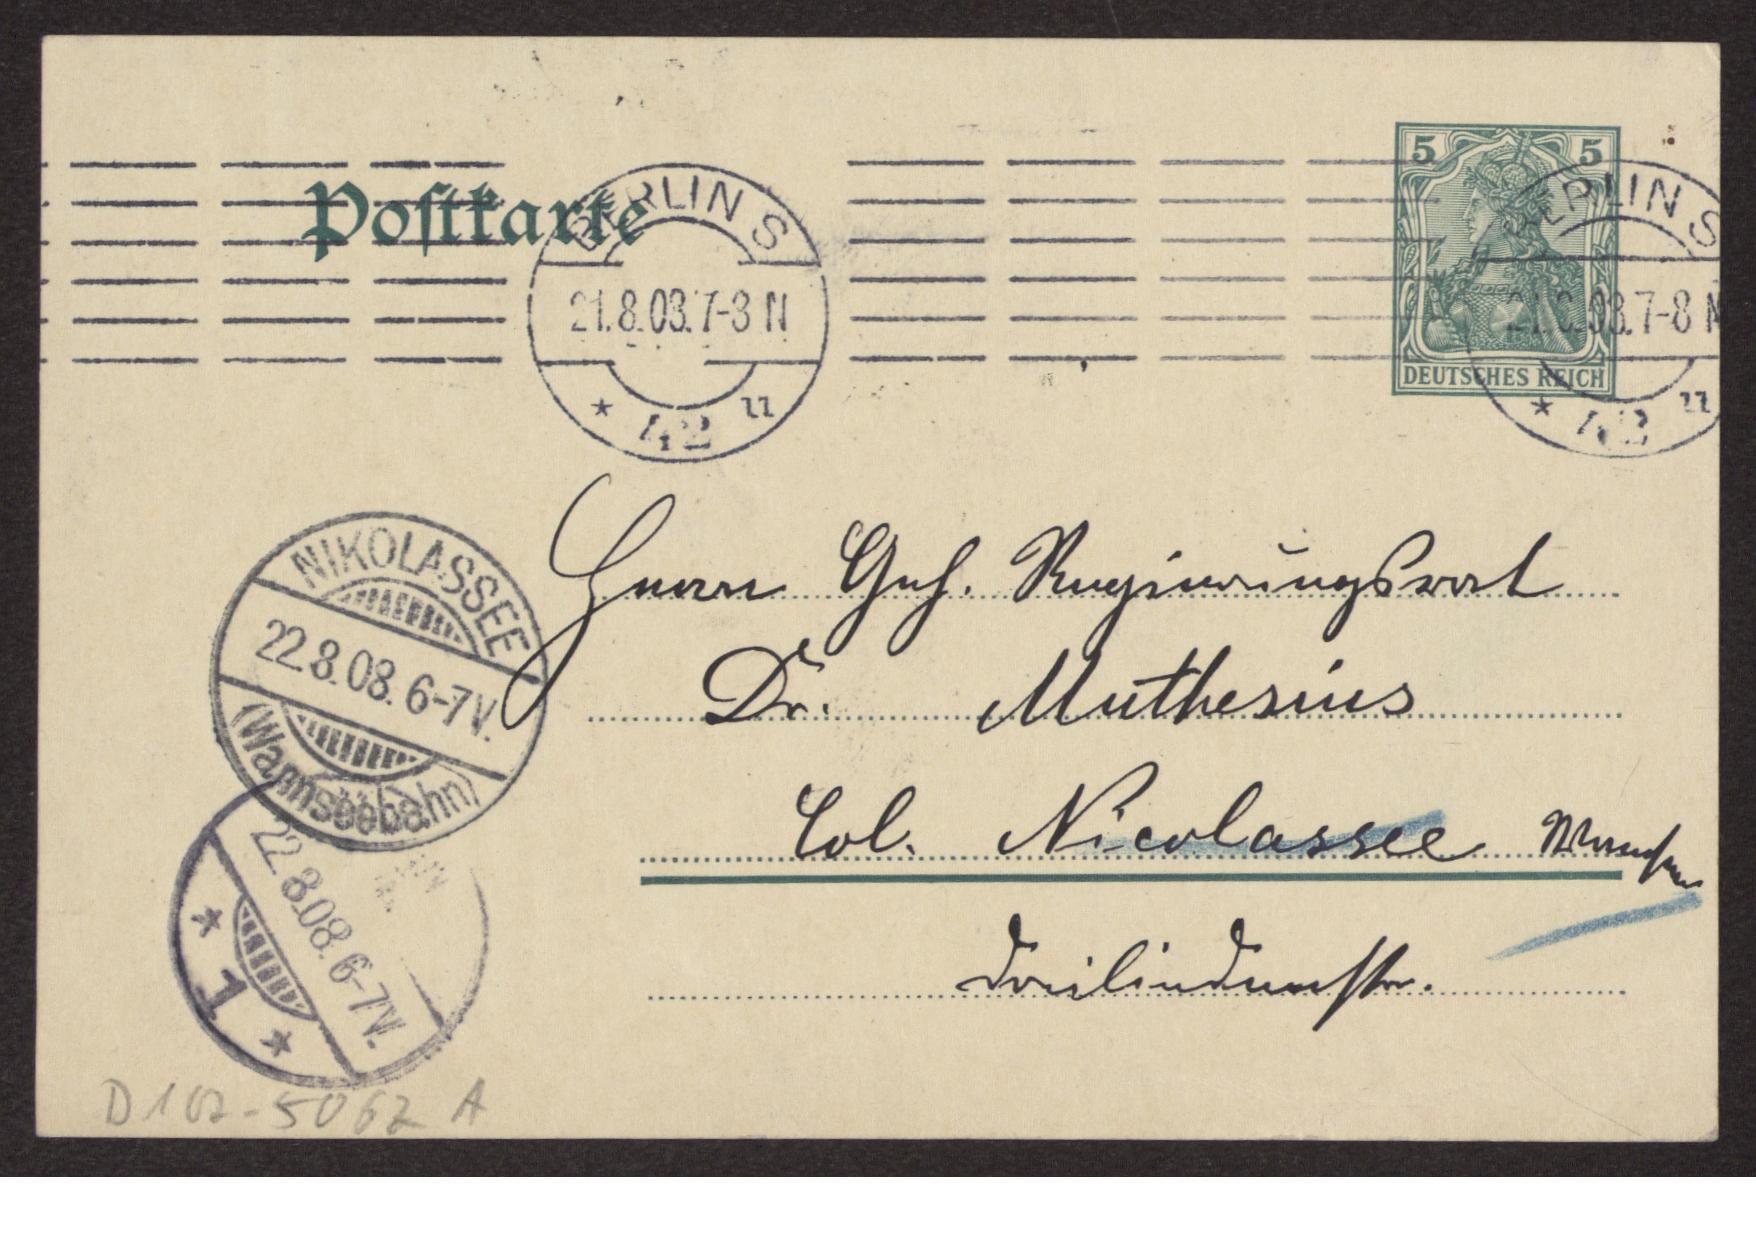 Postkarte
BERLIN S
21.8.08.7-8 N
* 42 u
5 5
DEUTSCHES REICH
BERLIN S
21.8.08.7-8 N
* 42 u
NIKOLASSEE
22.8.08.6-7V.
(Wannseebahn)
22.8.08.6-7V.
* 1 *
Herrn Geh. Regierungsrat
Dr. Muthesius
Col. Nicolassee
Dreilindenstr.
D 102-5062 A